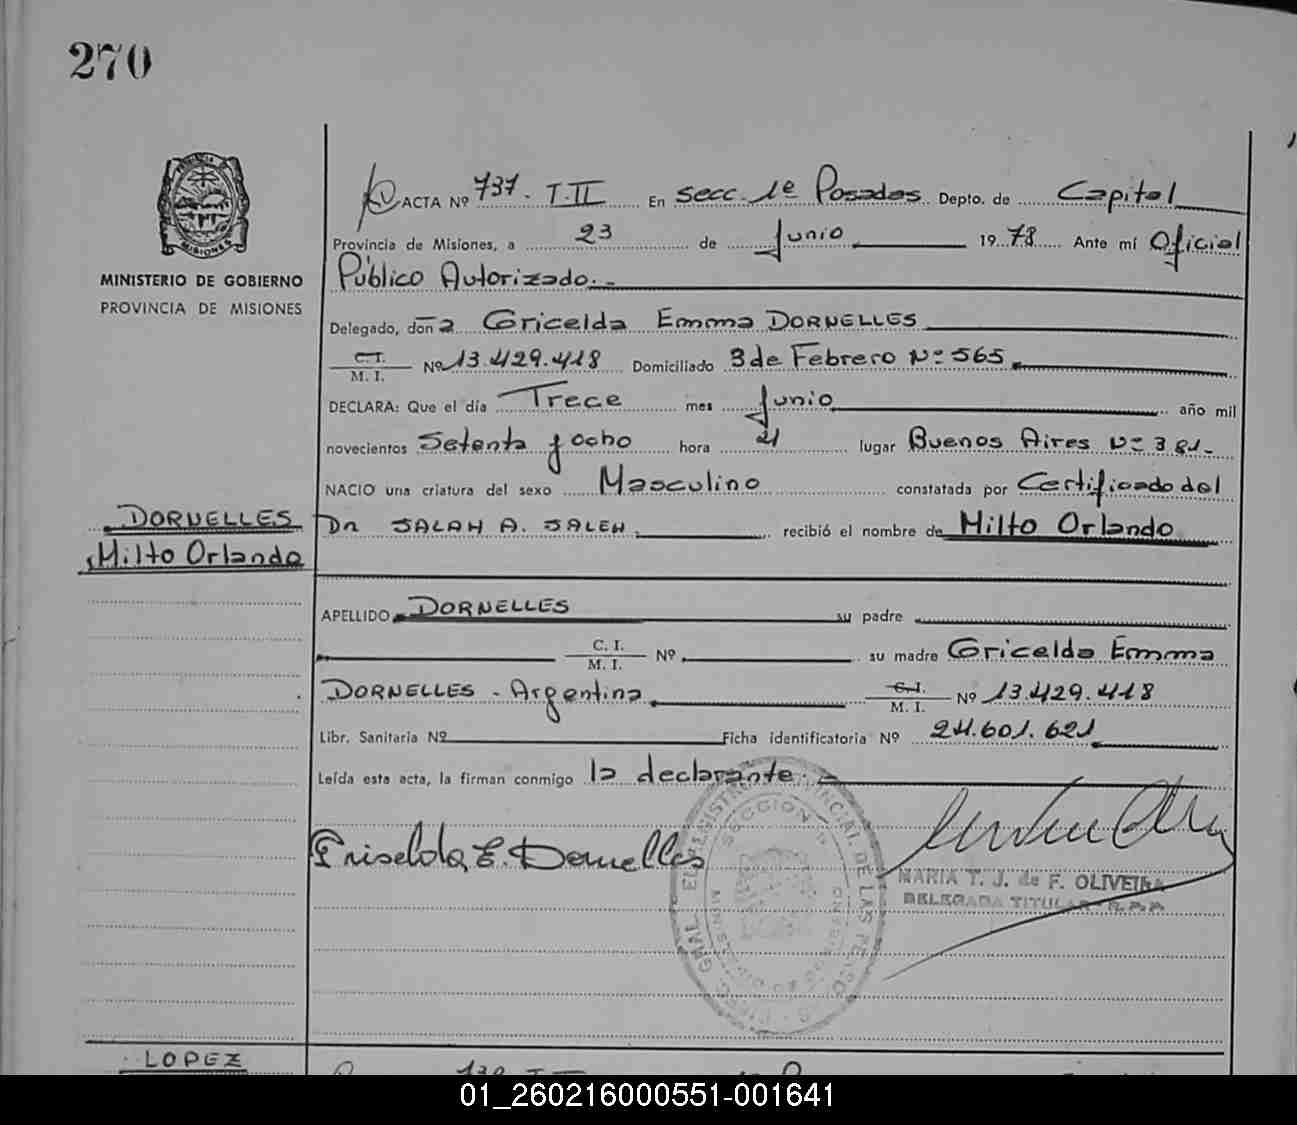 270
ACTA Nº 737. T.II En Secc. 1ª Posadas Depto. de Capital
Provincia de Misiones, a 23 de Junio 1978 Ante mí Oficial
MINISTERIO DE GOBIERNO
PROVINCIA DE MISIONES
Público Autorizado.-
Delegado, doña Gricelda Emma DORNELLES
C.I. / M. I. Nº 13.429.418 Domiciliado 3 de Febrero Nº 565
DECLARA: Que el día Trece mes Junio año mil
novecientos Setenta y ocho hora 21 lugar Buenos Aires Nº
NACIO una criatura del sexo Masculino constatada por Certificado del
DORNELLES
Milto Orlando
Dr SALAH A. SALEH recibió el nombre de Milto Orlando
APELLIDO DORNELLES su padre
C. I. / M. I. Nº su madre Gricelda Emma
DORNELLES - Argentina C.I. / M. I. Nº 13.429.418
Libr. Sanitaria Nº Ficha identificatoria Nº 24.601.621
Leída esta acta, la firman conmigo la declarante.-
Griselda E. Dornelles
MARIA T. J. de F. OLIVEIRA
DELEGADA TITULAR R.P.P.
LOPEZ
01_260216000551-001641